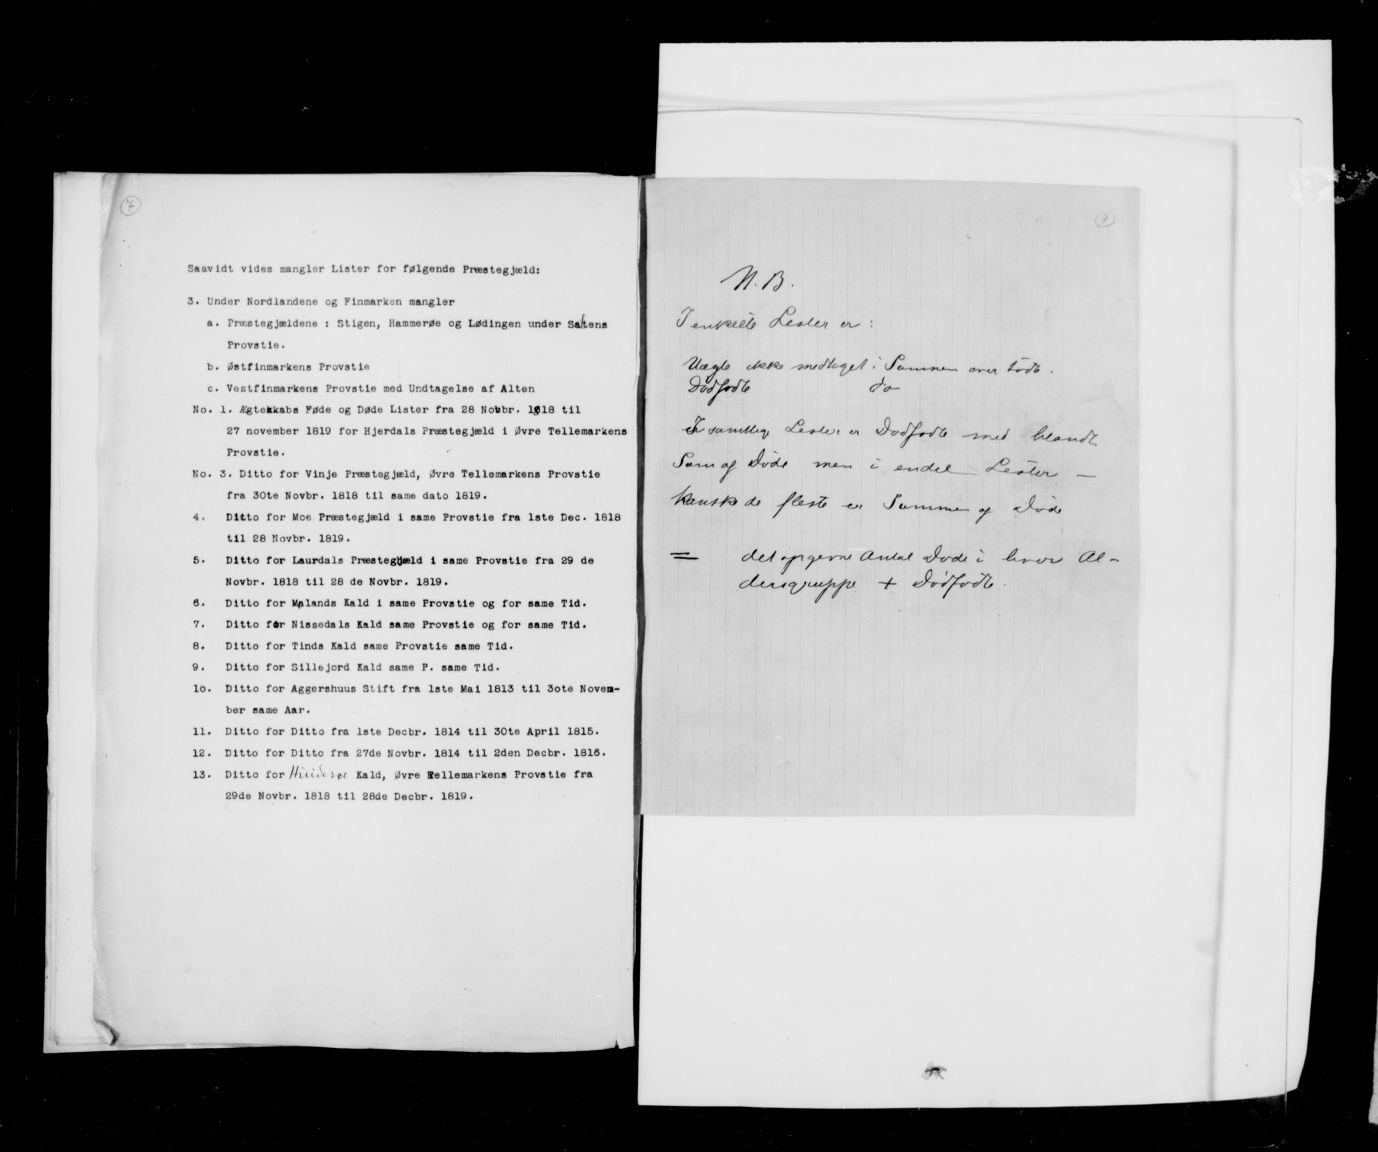 7
Saavidt vides mangler Lister for følgende Præstegjæld:
3. Under Nordlandene og Finmarken mangler
a. Præstegjældene : Stigen, Hammerøe og Lødingen under Saltens
Provstie.
b. Østfinmarkens Provstie
c. Vestfinmarkens Provstie med Undtagelse af Alten
No. 1. Ægteskabs Føde og Døde Lister fra 28 Novbr. 1818 til
27 november 1819 for Hjerdals Præstegjæld i Øvre Tellemarkens
Provstie.
No. 3. Ditto for Vinje Præstegjæld, Øvre Tellemarkens Provstie
fra 30te Novbr. 1818 til same dato 1819.
4. Ditto for Moe Præstegjæld i same Provstie fra 1ste Dec. 1818
til 28 Novbr. 1819.
5. Ditto for Laurdals Præstegjæld i same Provstie fra 29 de
Novbr. 1818 til 28 de Novbr. 1819.
6. Ditto for Mølands Kald i same Provstie og for same Tid.
7. Ditto for Nissedals Kald same Provstie og for same Tid.
8. Ditto for Tinds Kald same Provstie same Tid.
9. Ditto for Sillejord Kald same P. same Tid.
10. Ditto for Aggershuus Stift fra 1ste Mai 1813 til 3ote Novem-
ber same Aar.
11. Ditto for Ditto fra 1ste Decbr. 1814 til 30te April 1815.
12. Ditto for Ditto fra 27de Novbr. 1814 til 2den Decbr. 1816.
13. Ditto for Kald, Øvre Tellemarkens Provstie fra
29de Novbr. 1818 til 28de Decbr. 1819.
N.B.
I enkelte Lister er :
Uægte ikke medtaget i Summen over fødte.
Dødfødte do
I samtlige Lister er Dødfødte med blandt
Sum af Døde men i endel Lister —
kanske de fleste er Summen af Døde
= det opgivne Antal Døde i hver Al-
dersgruppe + Dødfødte.